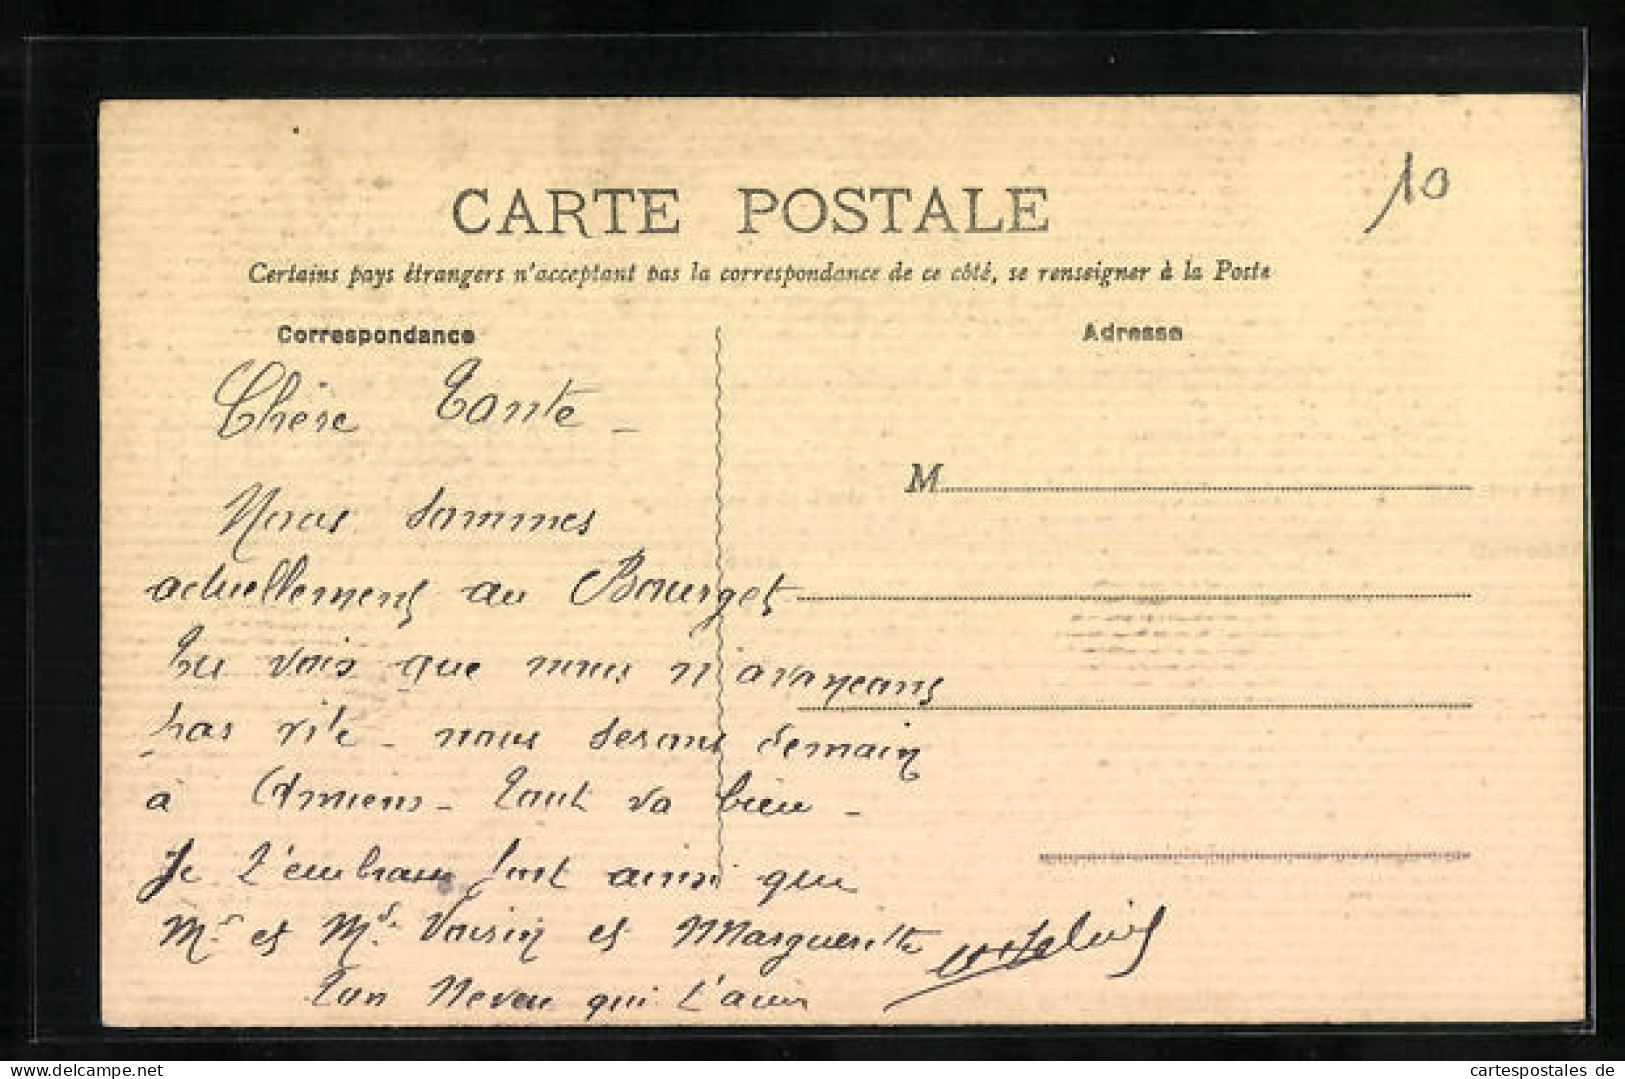 10
CARTE POSTALE
Certains pays étrangers n'acceptant pas la correspondance de ce côté, se renseigner à la Poste
Correspondance
Adresse
Chère Tante -
M
Nous sommes
actuellement au Bourget
tu vois que nous n'avançons
pas vite - nous serons demain
à Amiens - Tout va bien -
Je t'embrasse fort ainsi que
Mr et Me Voisin et Marguerite
Ton Neveu qui t'aime
cartespostales de